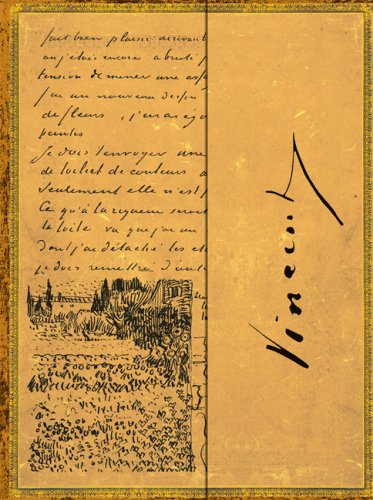 fait bien plaisir, arrivant
ou j'étais encore abruti p
tension de mener une as
J'ai un nouveau dessin
de fleurs, j'en ai
peintes
Je dois t'envoyer une
de couleurs
Seulement elle n'est p
Ce qu'à la rigueur
la toile va que j'ai en
Dont j'ai détaché les
je dois remettre d'
Vincent